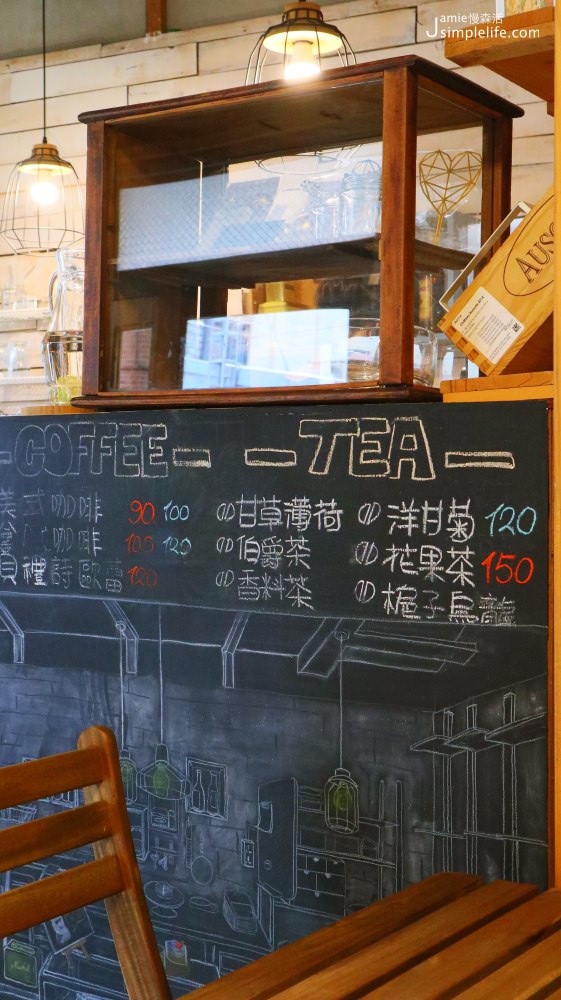 Jamie慢森活
Jsimplelife.com
AUSO
-COFFEE- -TEA-
美式咖啡 90 100 甘草薄荷 洋甘菊 120
咖啡 100 120 伯爵茶 花果茶 150
貝禮詩歐蕾 120 香料茶 梔子烏龍
Jamie慢森活
Jsimplelife.com